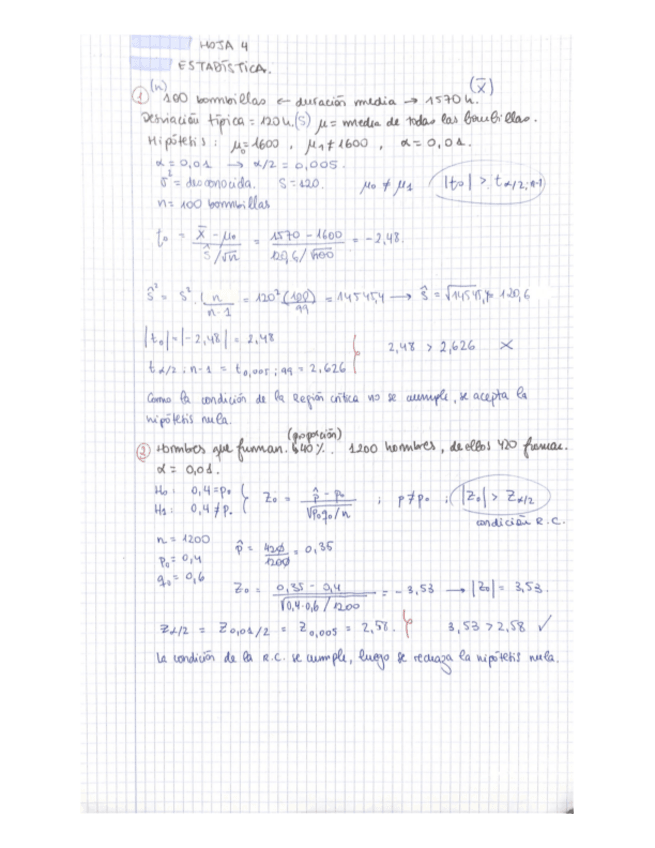 HOJA 4
ESTADÍSTICA.
(n) (x̄)
① 100 bombillas ← duración media → 1570 h.
Desviación típica = 120 h. (S) μ = media de todas las bombillas.
Hipótesis: μ₀ = 1600, μ₁ ≠ 1600, α = 0,01.
α = 0,01 → α/2 = 0,005.
σ² = desconocida. S = 120. μ₀ ≠ μ₁ |t₀| > t α/2; n-1
n = 100 bombillas
t₀ = (x̄ - μ₀)/(ŝ/√n) = (1570 - 1600)/(120,6/√100) = -2,48.
ŝ² = s² · (n/(n-1)) = 120² (100/99) = 14545,4 → ŝ = √14545,4 = 120,6
|t₀| = |-2,48| = 2,48
2,48 > 2,626 ×
t α/2; n-1 = t 0,005; 99 = 2,626
Como la condición de la Región crítica no se cumple, se acepta la
hipótesis nula.
(proporción)
② Hombres que fuman. 40%. 1200 hombres, de ellos 420 fuman.
α = 0,01.
H₀: 0,4 = p₀
H₁: 0,4 ≠ p₀ } Z₀ = (p̂ - p₀)/√(p₀q₀/n) ; p ≠ p₀ ; |Z₀| > Z α/2
condición R.C.
n = 1200
p₀ = 0,4 p̂ = 420/1200 = 0,35
q₀ = 0,6
Z₀ = (0,35 - 0,4)/√(0,4·0,6/1200) = -3,53 → |Z₀| = 3,53.
Z α/2 = Z 0,01/2 = Z 0,005 = 2,58. 3,53 > 2,58 ✓
La condición de la R.C. se cumple, luego se rechaza la hipótesis nula.